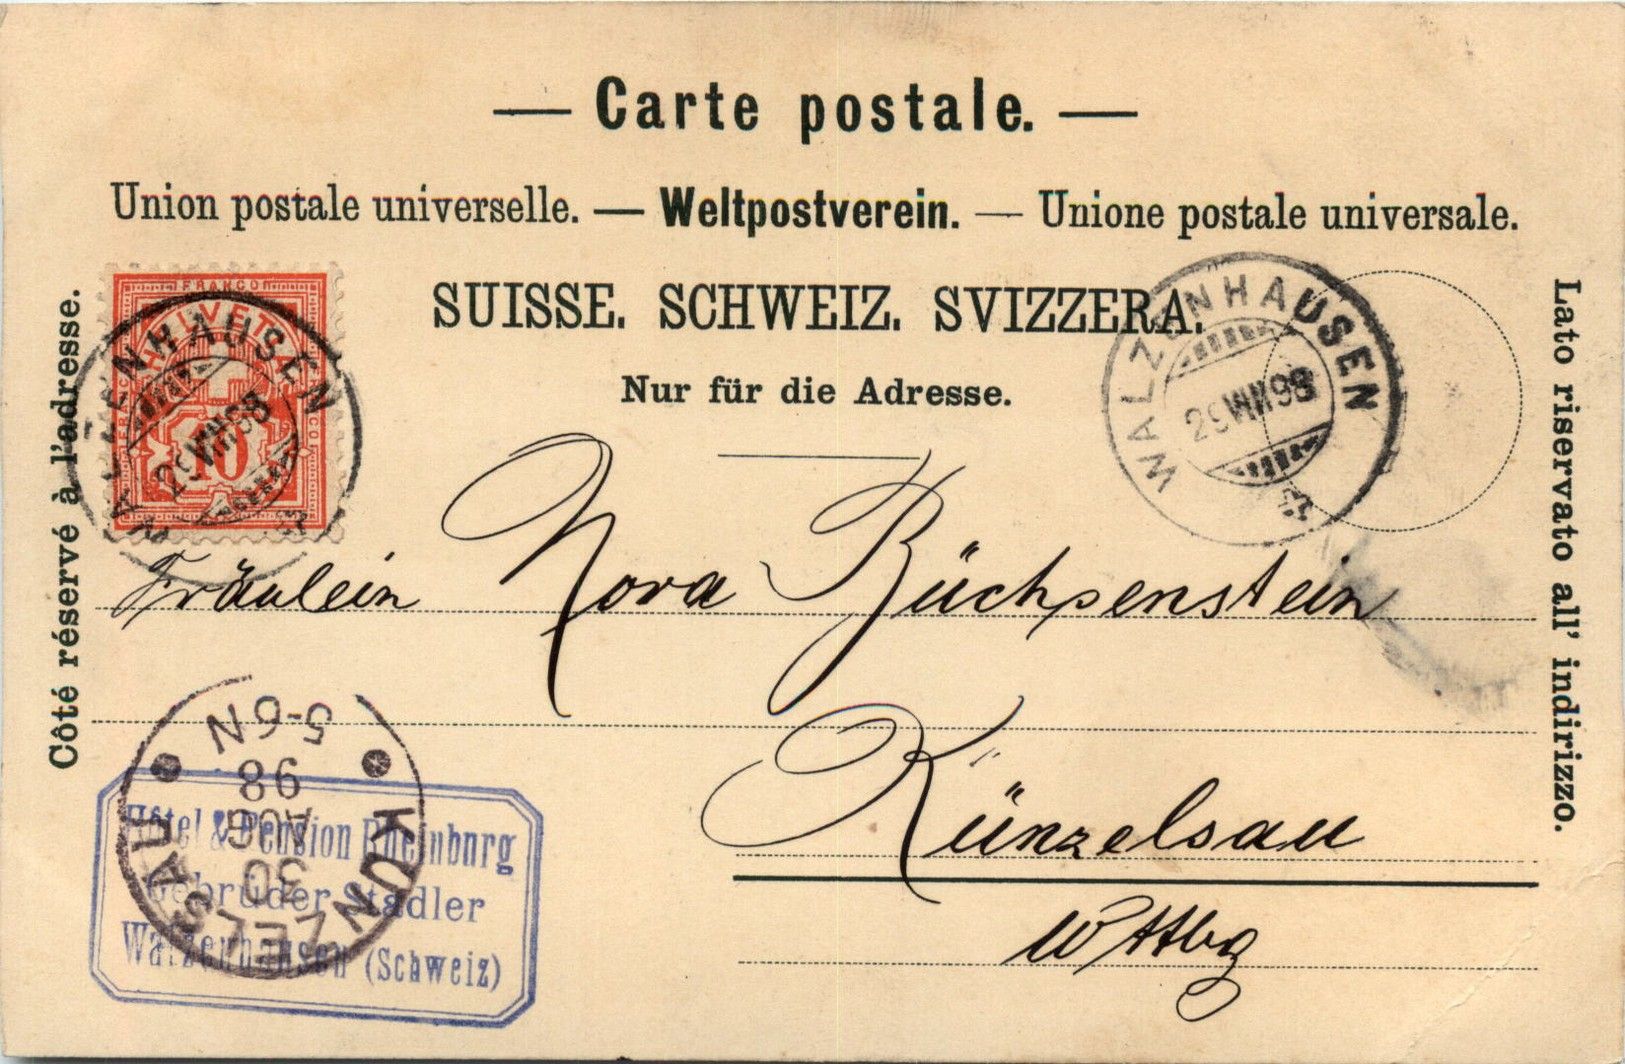 — Carte postale. —
Union postale universelle. — Weltpostverein. — Unione postale universale.
SUISSE. SCHWEIZ. SVIZZERA.
Nur für die Adresse.
Côté réservé à l'adresse.
Lato riservato all' indirizzo.
FRANCO
HELVETIA
10
WALZENHAUSEN
29 VIII 98
WALZENHAUSEN
29 VIII 98
Fräulein Nora Büchsenstein
Künzelsau
Wttbg
KÜNZELSAU
30
AUG
98
5-6N
Hôtel & Pension Rheinburg
Gebrüder Stadler
Walzenhausen (Schweiz)